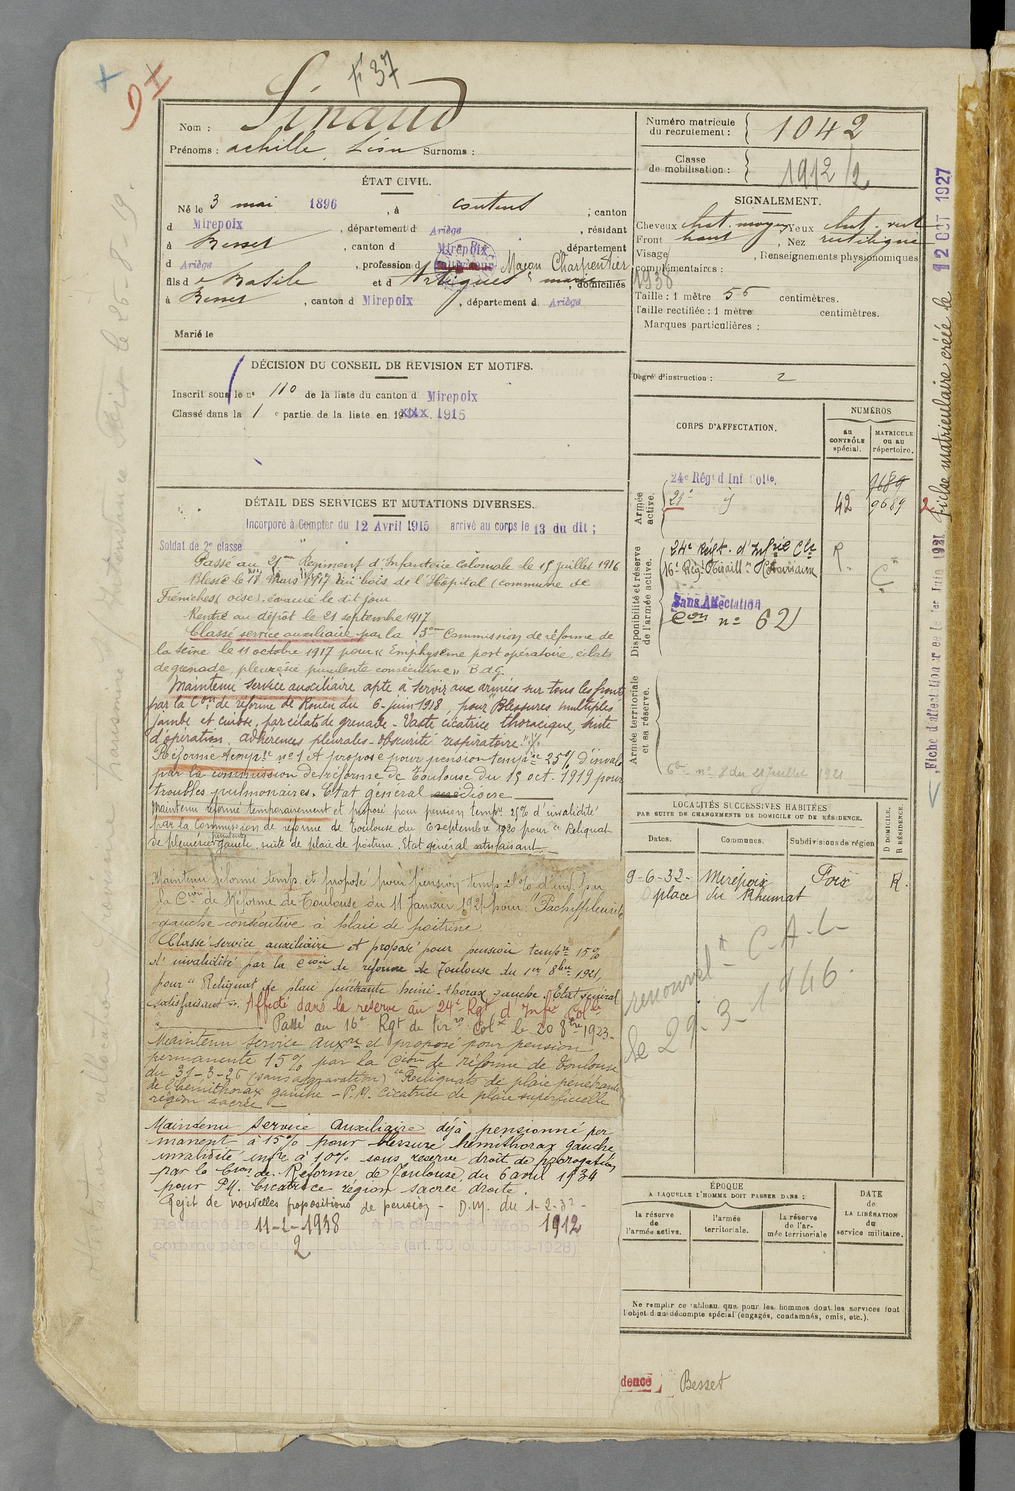 F 37
DI
Nom : Sénaud
Prénoms : achille, Léon Surnoms :
ÉTAT CIVIL.
Né le 3 mai 1896, à , canton
d Mirepoix, département d Ariège, résidant
à Besset, canton d Mirepoix, département
d Ariège, profession d Maçon Charpentier
fils de Basile et d Artigues marie, domiciliés
à Besset, canton d Mirepoix, département d Ariège
Marié le
DÉCISION DU CONSEIL DE REVISION ET MOTIFS.
Inscrit sous le n° 110 de la liste du canton d Mirepoix
Classé dans la 1 e partie de la liste en 1915
DÉTAIL DES SERVICES ET MUTATIONS DIVERSES.
Incorporé à Compter du 12 Avril 1915 arrivé au corps le 13 du dit ;
Soldat de 2e classe
Passé au Regiment d'Infanterie Coloniale le 15 juillet 1916
Blessé le 18 Mars 1917 au bois de l'Hôpital (commune de
Fréniches (oise). évacué le dit jour
Rentré au dépôt le 21 septembre 1917
Classé service auxiliaire par la 3eme Commission de réforme de
la Seine le 11 octobre 1917 pour "Emphysème post opératoire, éclats
de grenade, pleurésie purulente consécutive" B.d.G.
Maintenu Service auxiliaire apte à servir aux armées sur tous les fronts
par la Con de réforme de Rouen du 6-juin 1918, pour Blessures multiples
jambe et cuisse, par éclats de grenade - Vaste cicatrice thoracique, suite
d'opération - adhérences pleurales - Obscurité respiratoire."
Réformé temp. n° 1 et proposé pour pension tempre 25% d'inval.
par la commission de réforme de Toulouse du 15 oct. 1919 pour
troubles pulmonaires. Etat général médiocre.
Maintenu réformé temporairement et proposé pour pension tempre 25% d'invalidité
par la commission de réforme de Toulouse du 6 septembre 1920 pour "Reliquat
de pleurésie purulente gauche, suite de plaie de poitrine. Etat général satisfaisant.
Maintenu réformé temp. et proposé pour pension temp. 25% d'inf. par
la Cion de Réforme de Toulouse du 11 Janvier 1921 pour : "Pachypleurite
gauche consécutive à plaie de poitrine
Classé service auxiliaire et proposé pour pension tempre 15%
d'invalidité par la Cion de réforme de Toulouse du 1er 8bre 1921,
pour "Reliquat de plaie pénétrante hémi-thorax gauche. Etat général
satisfaisant". Affecté dans la réserve au 24e Rgt d'Infie Colle
Passé au 16e Rgt de tirrs Colx le 20 8bre 1923.
Maintenu Service auxre et proposé pour pension
permanente 15% par la Cion de réforme de Toulouse
du 31-3-26 (sans aggravation) "Reliquats de plaie pénétrante
de l'hémithorax gauche - P.M. Cicatrice de plaie superficielle
région sacrée -
Maintenu Service Auxiliaire déjà pensionné per
manent à 15% pour blessure hémithorax gauche
invalidité infre à 10% sous reserve droit de prorogation
par la Cion de Réforme de Toulouse, du 6 avril 1934
pour P.M. Cicatrice région sacrée droite.
Rejet de nouvelles propositions de pension - D.M. du
Rattaché le 11-2-1938 à la classe de Mob. 1912
comme père de 2 enfants (art. 58
Numéro matricule du recrutement : 1042
Classe de mobilisation : 1912/2
SIGNALEMENT.
Cheveux chat. moyen Yeux chat. vert
Front haut, Nez rectiligne
Visage , Renseignements physionomiques
complémentaires :
1938
Taille : 1 mètre 56 centimètres.
Taille rectifiée : 1 mètre centimètres.
Marques particulières :
Degré d'instruction : 2
CORPS D'AFFECTATION.
NUMÉROS
AU CONTRÔLE spécial.
MATRICULE OU AU répertoire.
Armée active.
24e Régt d Inf Colle.
21e 42 9689
Disponibilité et réserve de l'armée active.
24e Régt. d'Infrie Cle R.
16e Régt Tiraill
Sans Affectation
Con n° 621
Armée territoriale et sa réserve.
LOCALITÉS SUCCESSIVES HABITÉES
PAR SUITE DE CHANGEMENTS DE DOMICILE OU DE RÉSIDENCE.
Dates. Communes. Subdivisions de région D DOMICILE. R RÉSIDENCE.
9-6-32- Mirepoix Foix R.
place du Rhumat
renouvelt C.A.L
le 29-3-1946.
ÉPOQUE
A LAQUELLE L'HOMME DOIT PASSER DANS :
la réserve de l'armée active.
l'armée territoriale.
la réserve de l'armée territoriale
DATE de LA LIBÉRATION du service militaire.
Ne remplir ce tableau que pour les hommes dont les services font
l'objet d'un décompte spécial (engagés, condamnés, omis, etc.).
dence Besset
Fiche matriculaire créée le 12 OCT 1927
Fiche d'affectation créée le 1er Juin 1921